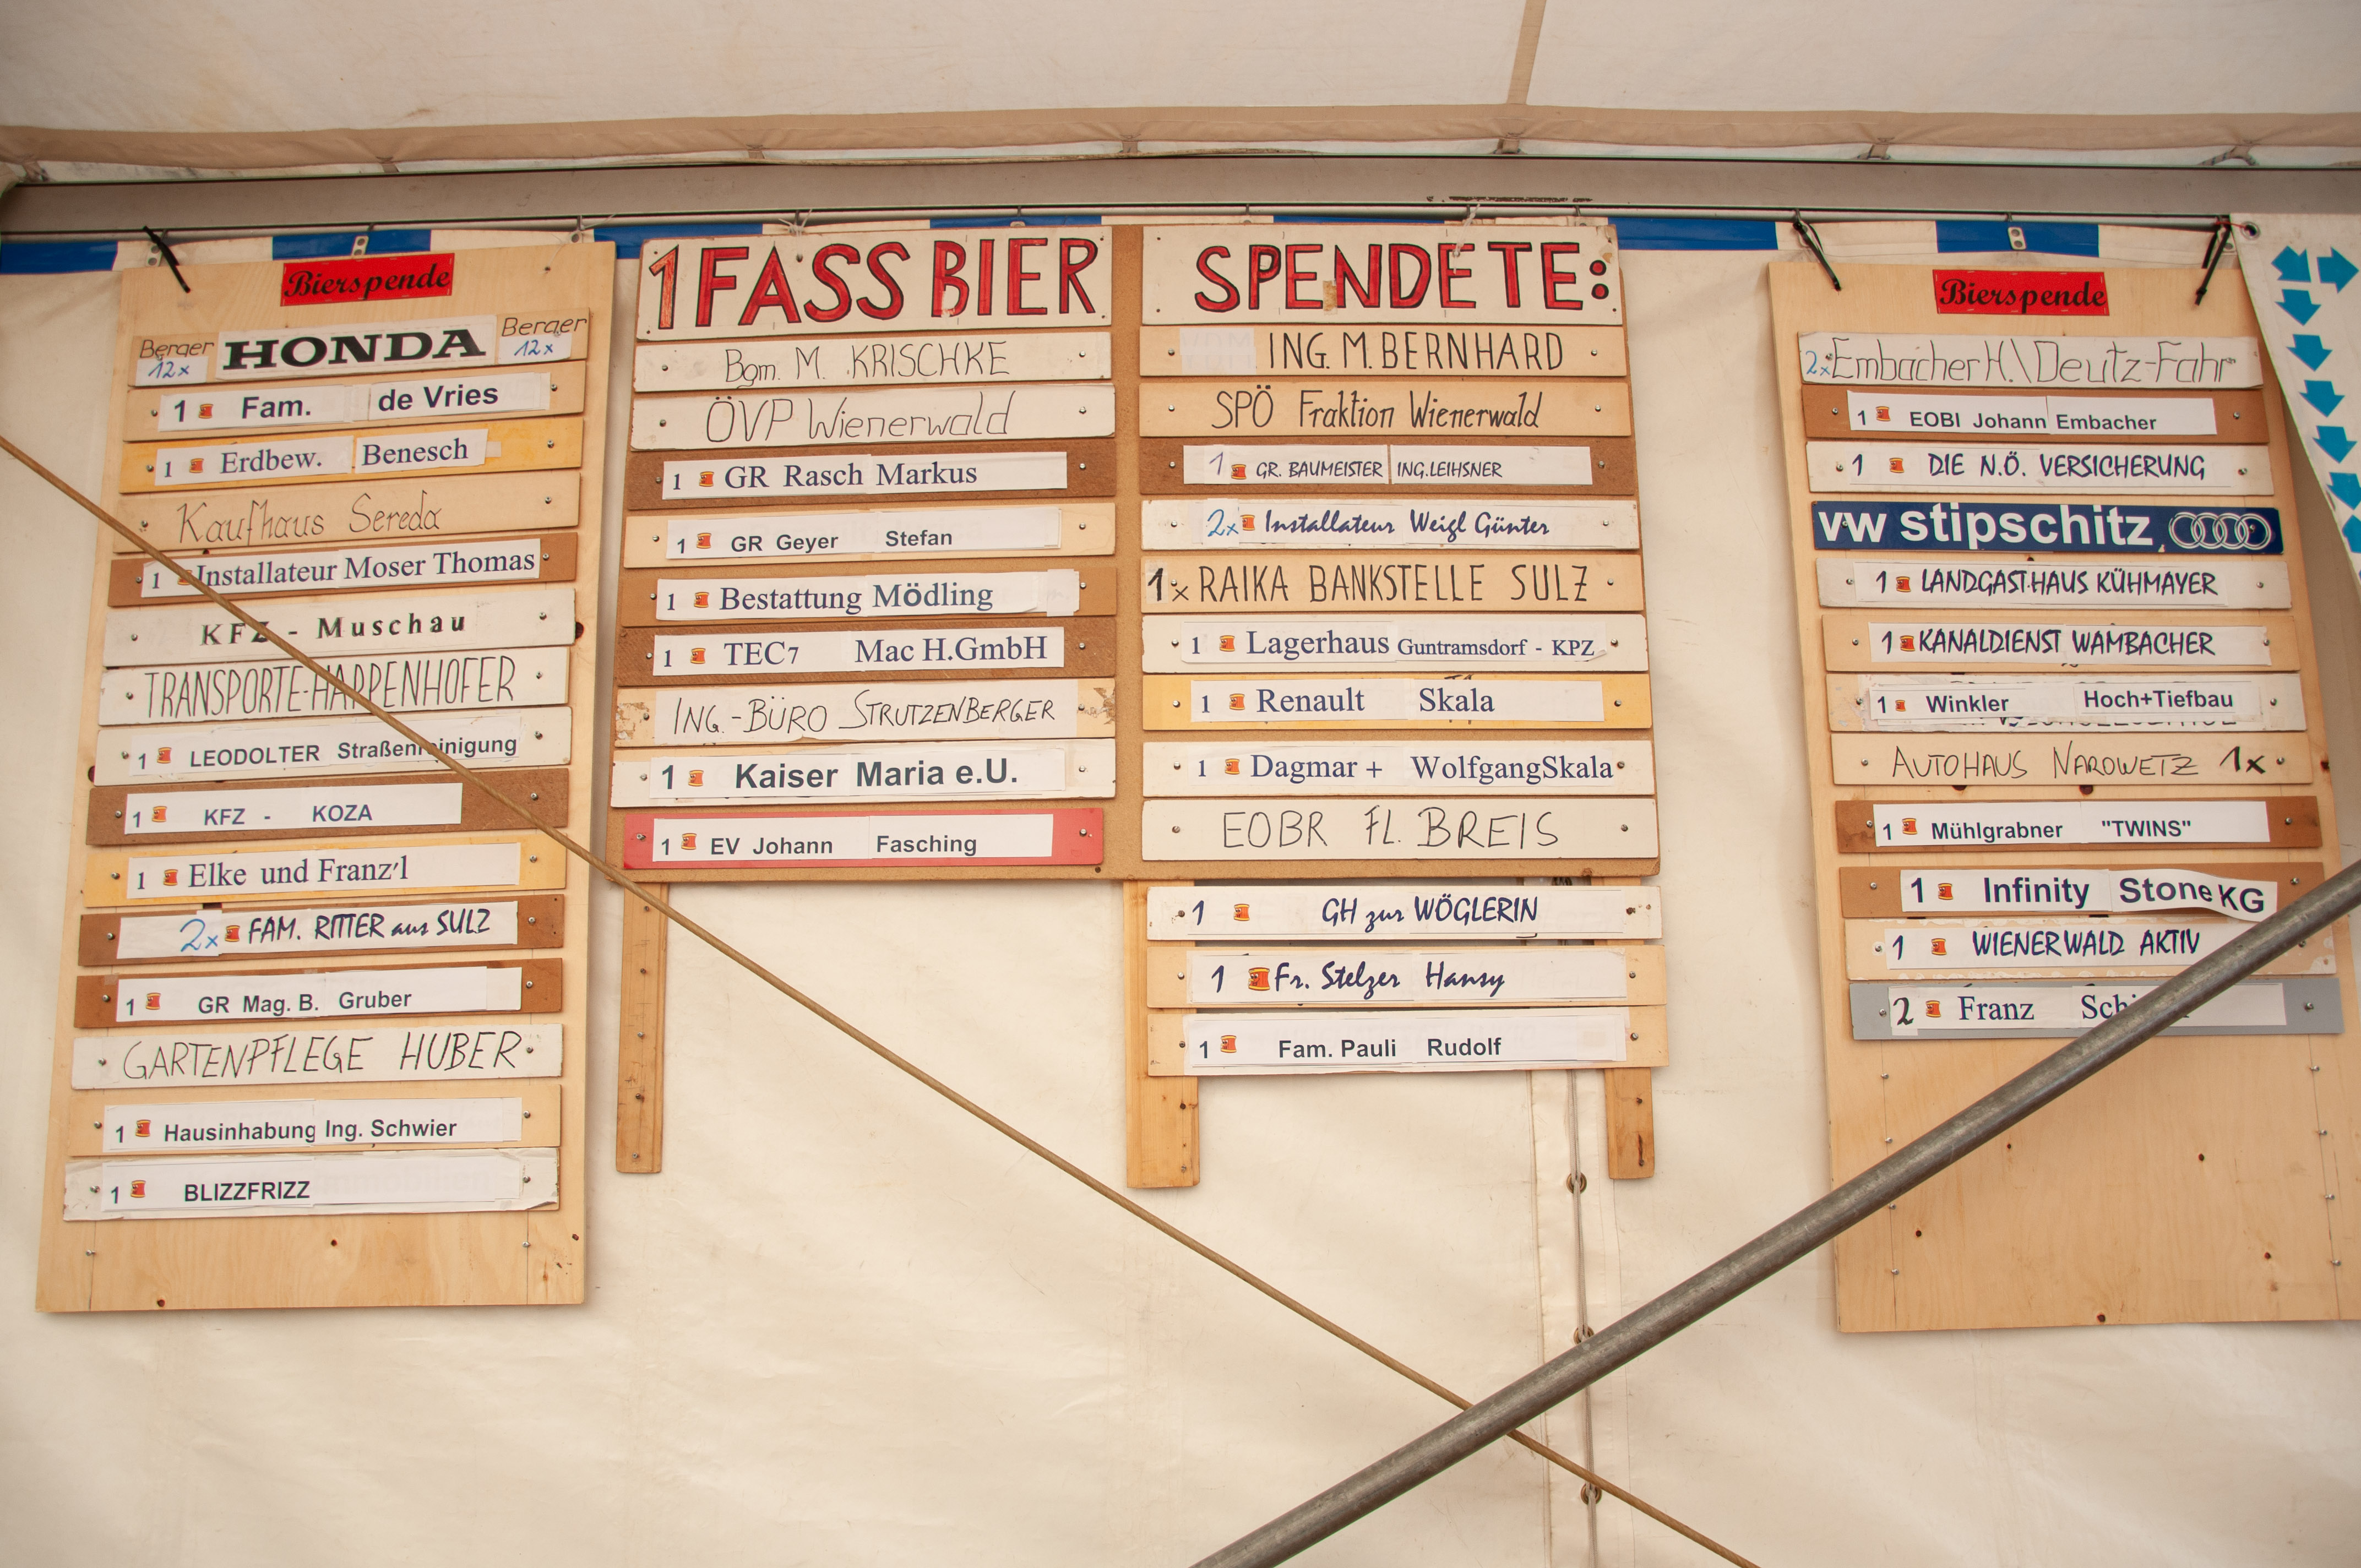 Bierspende
Berger 12x HONDA Berger 12x
1 Fam. de Vries
1 Erdbew. Benesch
Kaufhaus Sereda
1 Installateur Moser Thomas
KFZ - Muschau
TRANSPORTE-HAPPENHOFER
1 LEODOLTER Straßenreinigung
1 KFZ - KOZA
1 Elke und Franz'l
2x FAM. RITTER aus SULZ
1 GR Mag. B. Gruber
GARTENPFLEGE HUBER
1 Hausinhabung Ing. Schwier
1 BLIZZFRIZZ
1 FASS BIER SPENDETE:
Bgm. M. KRISCHKE
ÖVP Wienerwald
1 GR Rasch Markus
1 GR Geyer Stefan
1 Bestattung Mödling
1 TEC7 Mac H.GmbH
ING.-BÜRO STRUTZENBERGER
1 Kaiser Maria e.U.
1 EV Johann Fasching
ING. M. BERNHARD
SPÖ Fraktion Wienerwald
1 GR. BAUMEISTER ING.LEIHSNER
2x Installateur Weigl Günter
1x RAIKA BANKSTELLE SULZ
1 Lagerhaus Guntramsdorf - KPZ
1 Renault Skala
1 Dagmar + WolfgangSkala
EOBR FL. BREIS
1 GH zur WÖGLERIN
1 Fr. Stelzer Hansy
1 Fam. Pauli Rudolf
Bierspende
2x Embacher H.\Deutz-Fahr
1 EOBI Johann Embacher
1 DIE N.Ö. VERSICHERUNG
vw stipschitz
1 LANDGASTHAUS KÜHMAYER
1 KANALDIENST WAMBACHER
1 Winkler Hoch+Tiefbau
AUTOHAUS NAROWETZ 1x
1 Mühlgrabner "TWINS"
1 Infinity Stone KG
1 WIENERWALD AKTIV
2 Franz